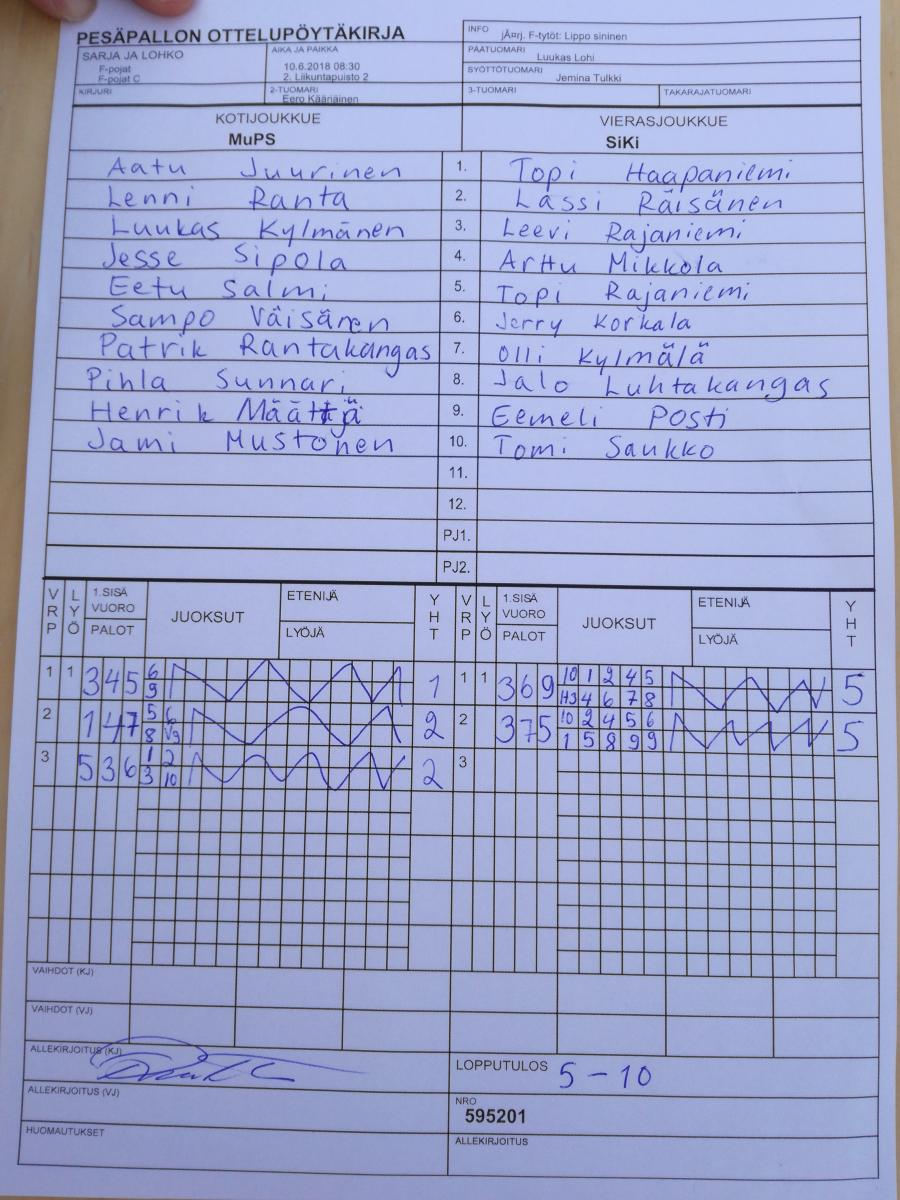 PESÄPALLON OTTELUPÖYTÄKIRJA
INFO jÃ¤rj. F-tytöt: Lippo sininen
SARJA JA LOHKO
F-pojat
F-pojat C
AIKA JA PAIKKA
10.6.2018 08:30
2. Liikuntapuisto 2
PÄÄTUOMARI Luukas Lohi
SYÖTTÖTUOMARI Jemina Tulkki
KIRJURI
2-TUOMARI
Eero Kääriäinen
3-TUOMARI
TAKARAJATUOMARI
KOTIJOUKKUE VIERASJOUKKUE
MuPS SiKi
Aatu Juurinen 1. Topi Haapaniemi
Lenni Ranta 2. Lassi Räisänen
Luukas Kylmänen 3. Leevi Rajaniemi
Jesse Sipola 4. Arttu Mikkola
Eetu Salmi 5. Topi Rajaniemi
Sampo Väisänen 6. Jerry Korkala
Patrik Rantakangas 7. Olli Kylmälä
Pihla Sunnari 8. Jalo Luhtakangas
Henrik Määttä 9. Eemeli Posti
Jami Mustonen 10. Tomi Saukko
11.
12.
PJ1.
PJ2.
VRP LYÖ 1.SISÄ VUORO PALOT JUOKSUT ETENIJÄ LYÖJÄ YHT VRP LYÖ 1.SISÄ VUORO PALOT JUOKSUT ETENIJÄ LYÖJÄ YHT
1 1 3 4 5 6 1 1 1 3 6 9 10 1 2 4 5 5
9 H3 4 6 7 8
2 1 4 7 5 6 2 2 3 7 5 10 2 4 5 6 5
8 V9 1 5 8 9 9
3 5 3 6 1 2 2 3
3 10
VAIHDOT (KJ)
VAIHDOT (VJ)
ALLEKIRJOITUS (KJ)
LOPPUTULOS 5 - 10
ALLEKIRJOITUS (VJ)
NRO
595201
HUOMAUTUKSET
ALLEKIRJOITUS